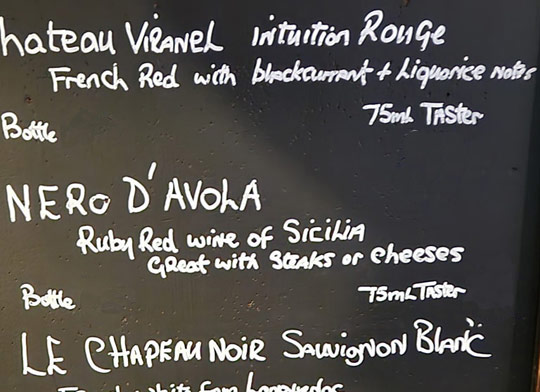 hateau Viranel intuition Rouge
French Red with blackcurrant + Liquorice notes
75mL TASTER
Bottle
NERO D'AVOLA
Ruby Red wine of SiCiLiA
Great with STEAKS or cheeses
Bottle 75mL Taster
LE CHAPEAU NOIR SAUVIGNON BLANC
French white from Languedoc